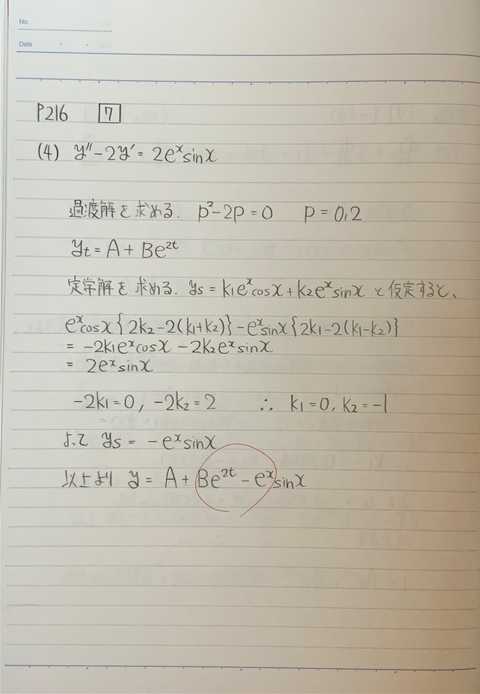 No.
Date
P216 7
(4) y″−2y′=2eˣsinx
過渡解を求める. p²−2p=0 p=0,2
yt=A+Be²ᵗ
定常解を求める. ys=k₁eˣcosx+k₂eˣsinxと仮定すると、
eˣcosx{2k₂−2(k₁+k₂)}−eˣsinx{2k₁−2(k₁−k₂)}
=−2k₁eˣcosx−2k₂eˣsinx
=2eˣsinx
−2k₁=0, −2k₂=2 ∴ k₁=0, k₂=−1
よって ys=−eˣsinx
以上より y=A+Be²ᵗ−eˣsinx